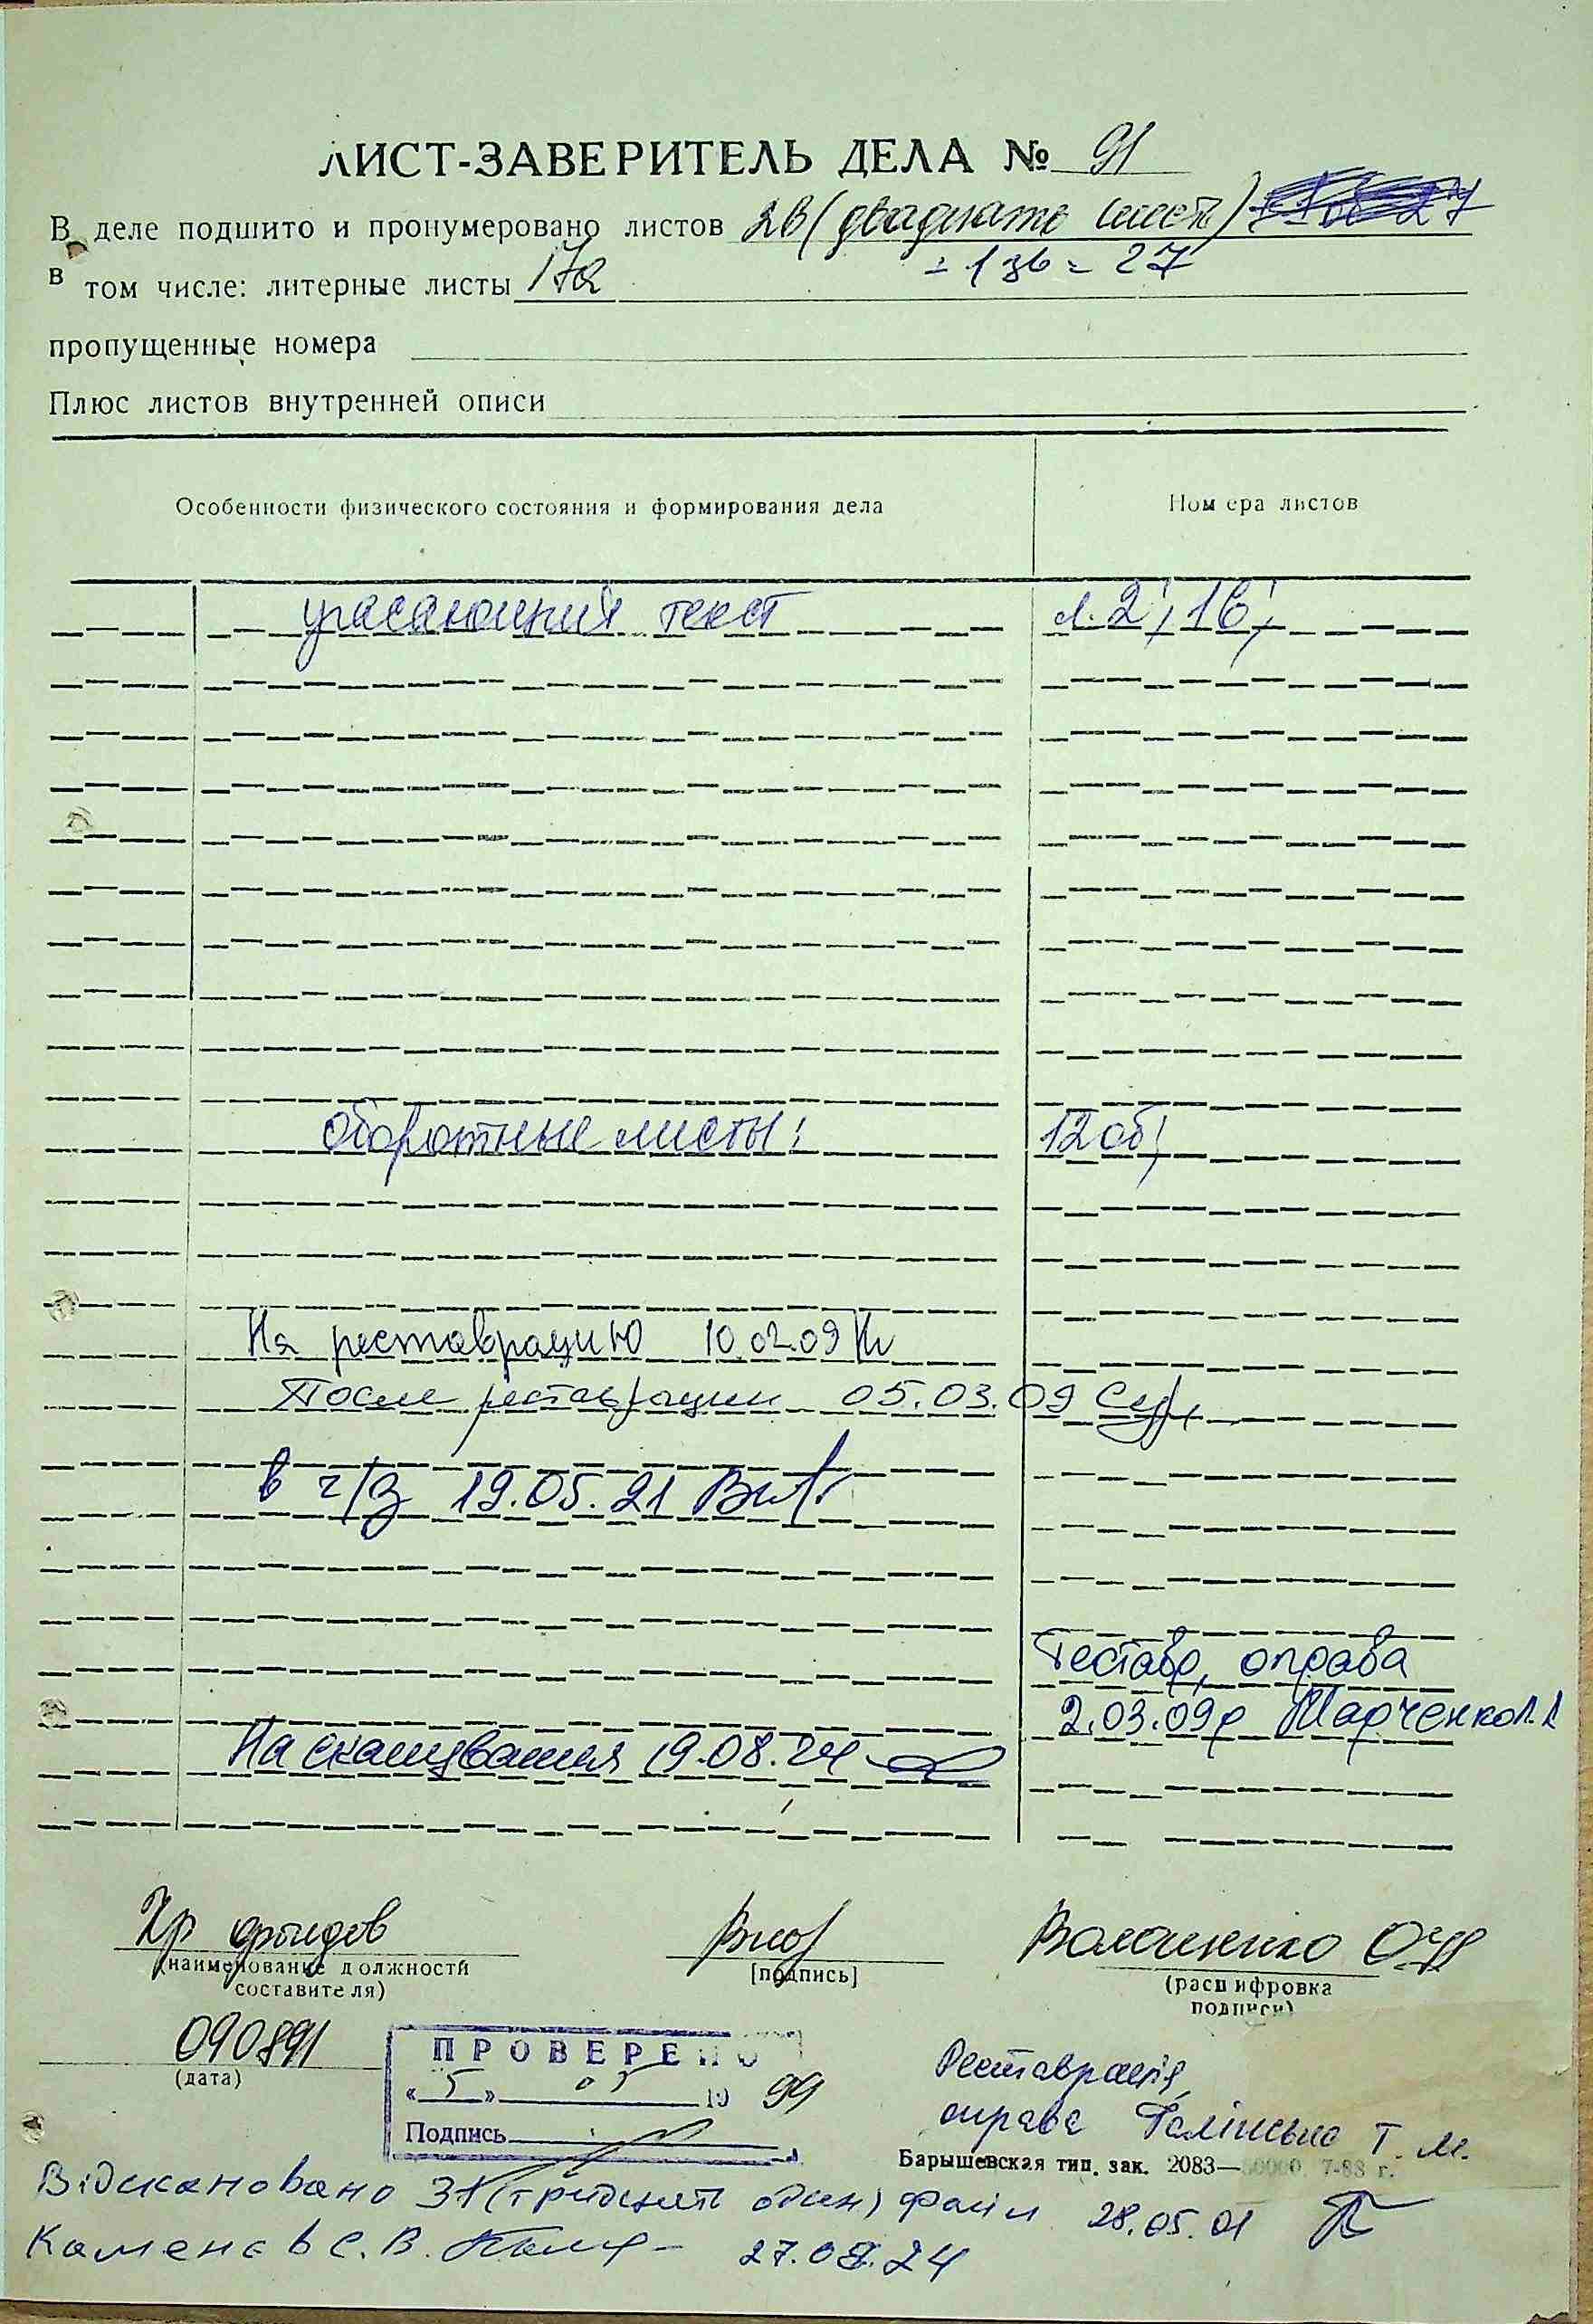 ЛИСТ-ЗАВЕРИТЕЛЬ ДЕЛА № 91
В деле подшито и пронумеровано листов 26 (двадцать шесть)
+ 1 зв = 27
в том числе: литерные листы 17а
пропущенные номера
Плюс листов внутренней описи
Особенности физического состояния и формирования дела
Номера листов
угасающий текст л. 2; 16;
оборотные листы: 12об;
На реставрацию 10.02.09
После реставрации 05.03.09
в ч/з 19.05.21
Реставр, оправа
2.03.09р Марченко Л.
На сканування 19.08.24
Хр фондов
Волошенко О.Н
(наименование должности
составителя)
[подпись]
(расшифровка
подписи)
090891
(дата)
ПРОВЕРЕНО
« 5 » 05 19 99
Подпись
Реставрація,
оправа Т. М.
Барышевская тип. зак. 2083—50000 7-88 г.
28.05.01
Відскановано 31 (тридцять один) файл
Каменєв С.В. 27.08.24